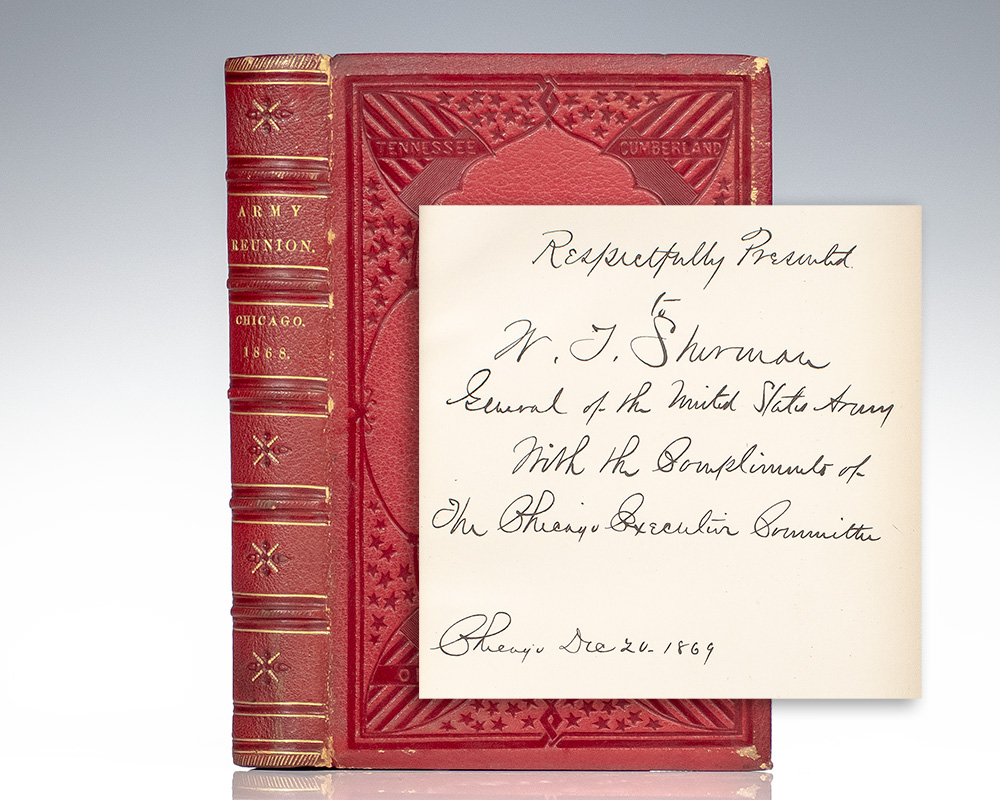 ARMY
REUNION.
CHICAGO,
1868.
TENNESSEE
CUMBERLAND
O
Respectfully Presented
to
W. T. Sherman
General of the United States Army
With the Compliments of
The Chicago Executive Committee
Chicago Dec 20- 1869